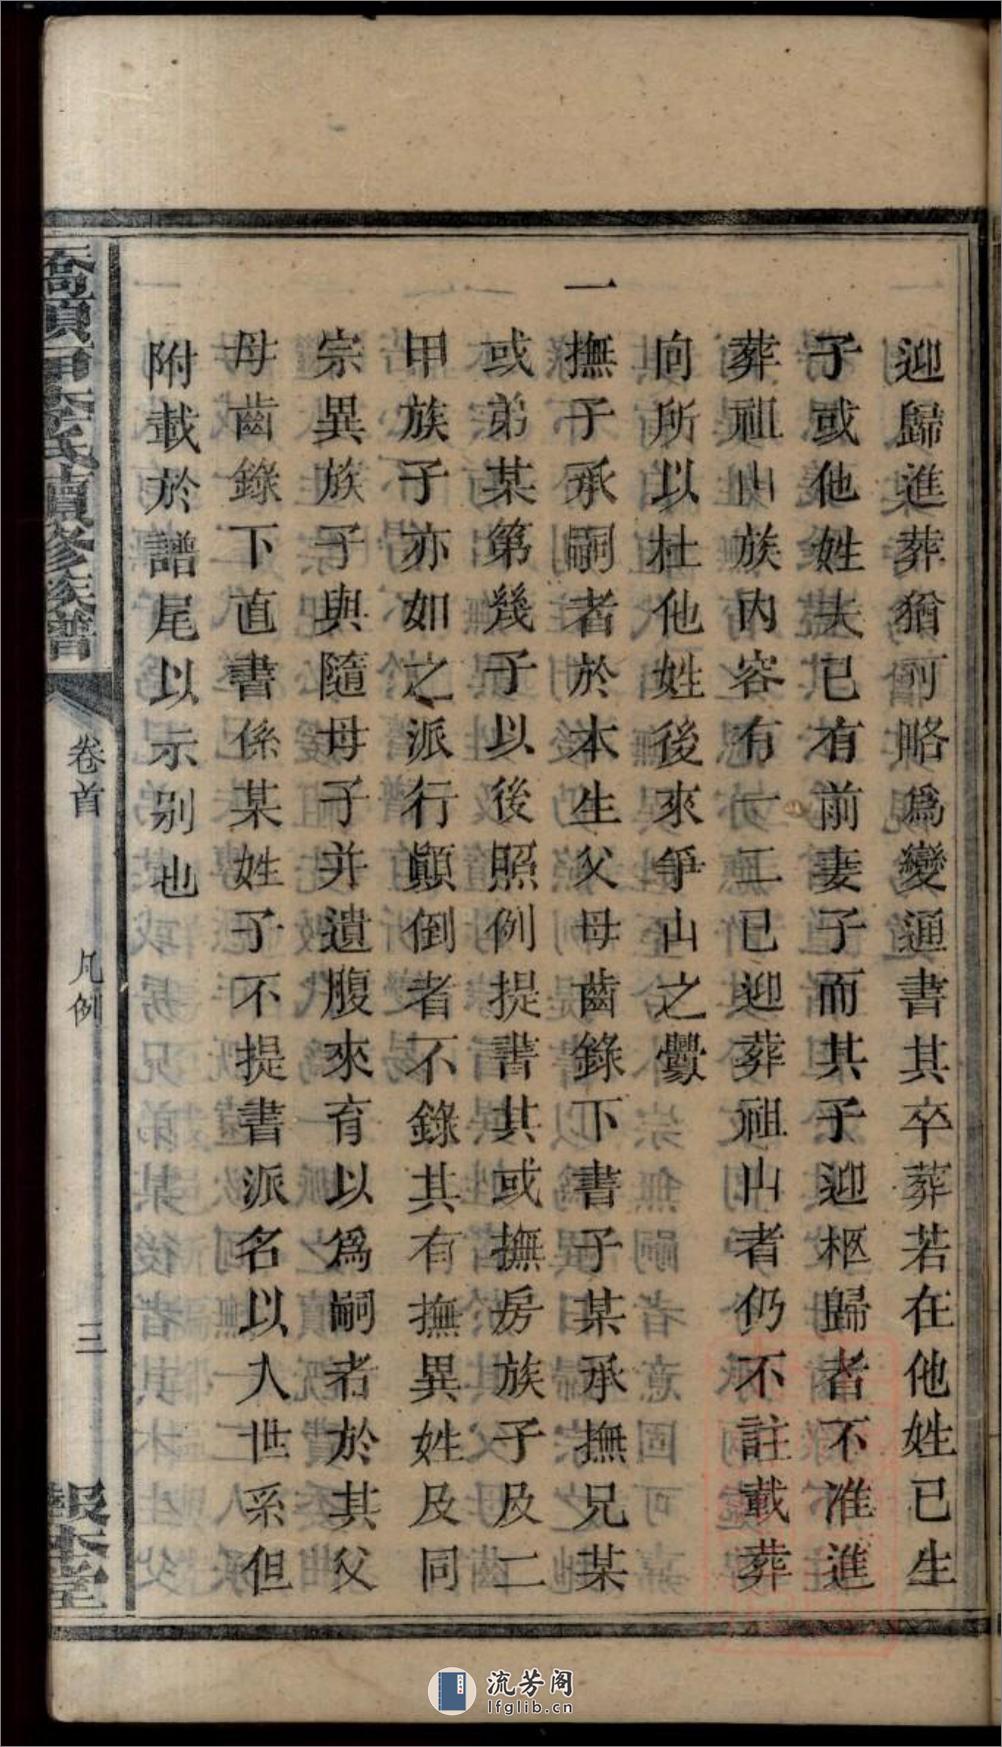 迎歸進葬猶可略爲變通書其卒葬若在他姓已生
子或他姓夫已有前妻子而其子迎柩歸者不准進
葬祖山族內容有一二已迎葬祖山者仍不註載葬
向所以杜他姓後來爭山之釁
一撫子承嗣者於本生父母齒錄下書子某承撫兄某
或弟某第幾子以後照例提書其或撫房族子及二
甲族子亦如之派行顚倒者不錄其有撫異姓及同
宗異族子與隨母子并遺腹來育以爲嗣者於其父
母齒錄下直書係某姓子不提書派名以入世系但
附載於譜尾以示别也
甲李氏續修族譜
卷首
凡例
三
報本堂
流芳阁
lfglib.cn